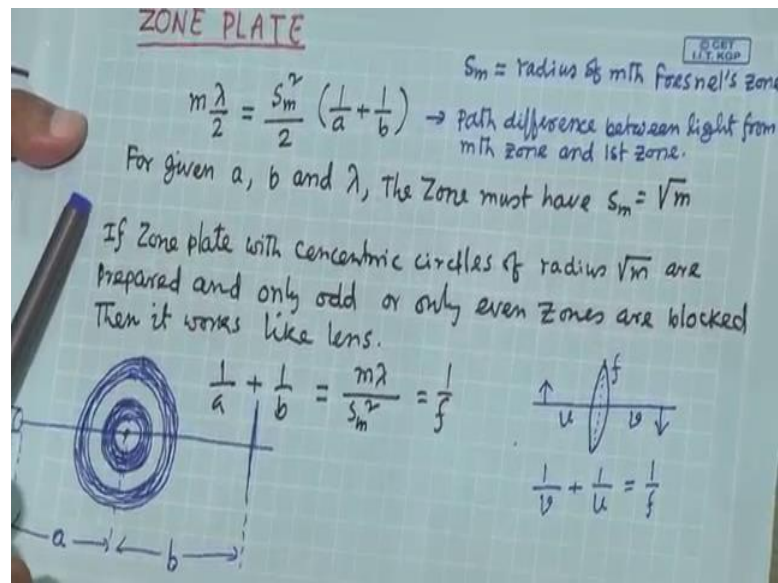 ZONE PLATE
© CET
I.I.T. KGP
Sm = radius of mth Foresnel's zone
mλ/2 = Sm²/2 (1/a + 1/b) → Path difference between light from
mth zone and 1st zone.
For given a, b and λ, The Zone must have Sm = √m
If Zone plate with cencentric circlles of radius √m are
Prepared and only odd or only even Zones are blocked
Then it works like lens.
1/a + 1/b = mλ/Sm² = 1/f
f
u v
1/v + 1/u = 1/f
a b